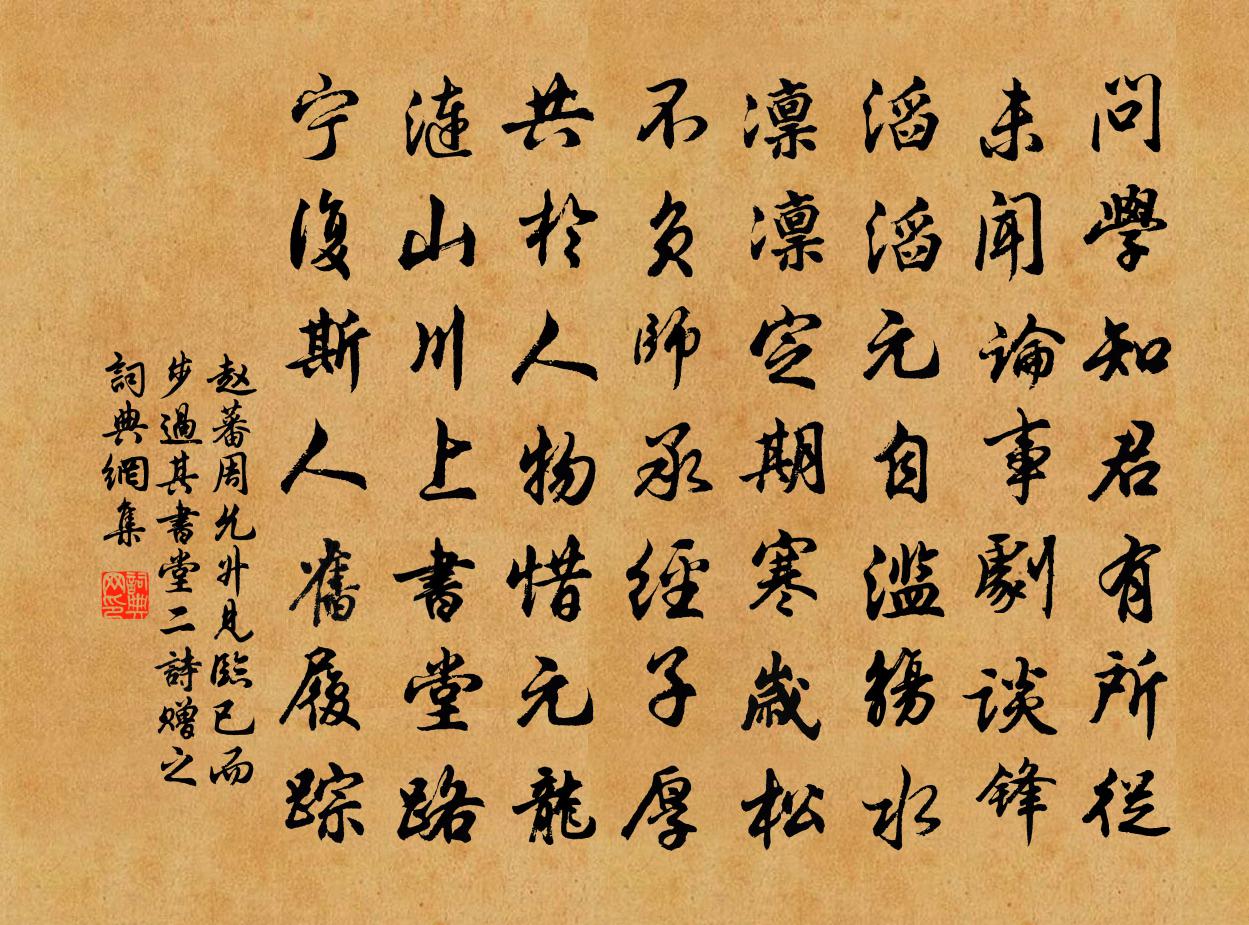 問學知君有所從
未聞論事劇談鋒
滔滔元自濫觴水
凛凛定期寒歲松
不負師承經子厚
共於人物惜元龍
漣山川上書堂路
宁復斯人舊履踪
赵蕃周允升見臨已而
步過其書堂二詩赠之
詞典網集
詞典网印